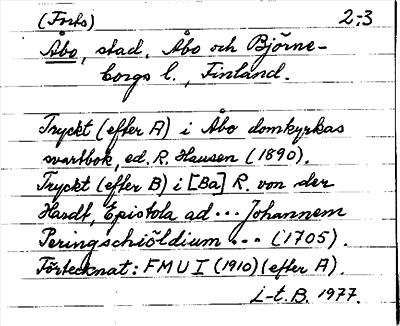 (Forts) 2:3
Åbo, stad. Åbo och Björne-
borgs l., Finland.
Tryckt (efter A) i Åbo domkyrkas
svartbok, ed. R. Hausen (1890).
Tryckt (efter B) i [Ba] R. von der
Hardt, Epistola ad ... Johannem
Peringschiöldium ... (1705).
Förtecknat: FMU I (1910) (efter A).
L-t. B. 1977.